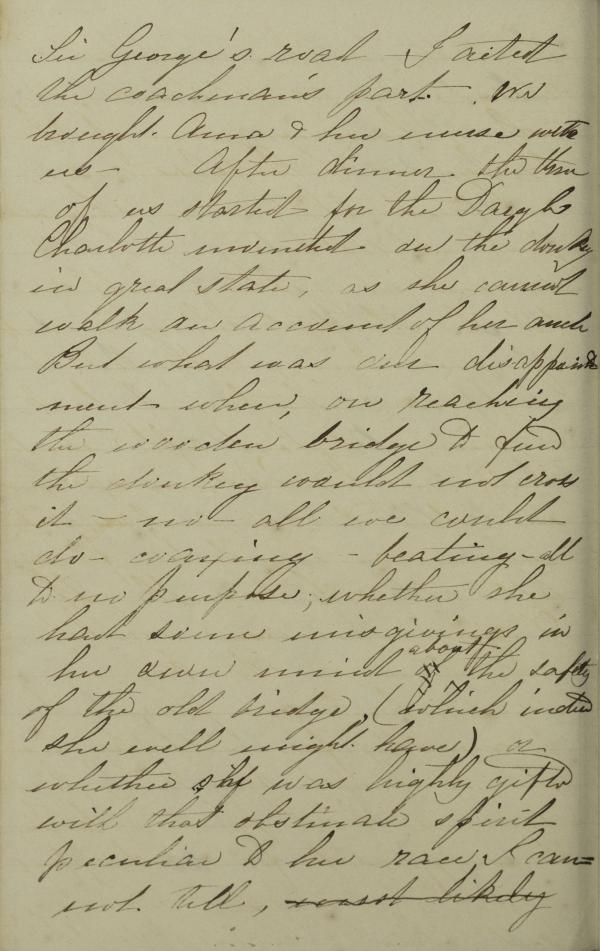 Sir George's road – I acted
the coachman's part. We
brought Anna & her nurse with
us – After dinner the three
of us started for the Dargle
Charlotte mounted on the donkey
in great state, as she cannot
walk on account of her ancle
But what was our disappoint
ment when, on reaching
the wooden bridge to find
the donkey would not cross
it – no – all we could
do – coaxing – beating – all
to no purpose; whether she
had some misgivings in
her own mind about the safety
of the old bridge, (which indeed
she well might have) or
whether she was highly gifted
with that obstinate spirit
peculiar to her race I can=
not tell, most likely